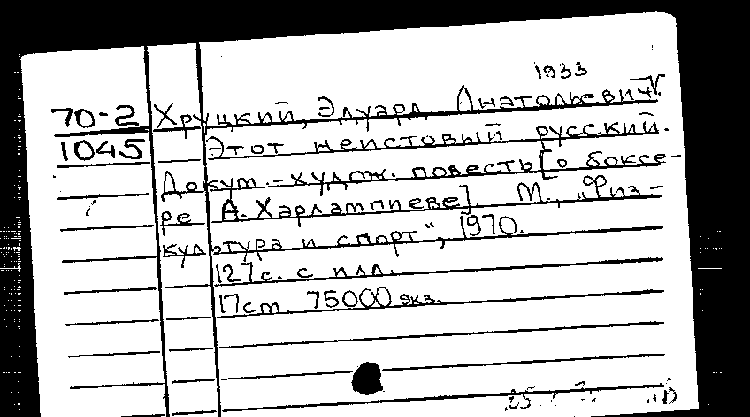 1933
70-2 Хруцкий, Эдуард Анатольевич.
1045 Этот неистовый русский.
Докум.-худож. повесть [о боксе-
ре А. Харлампиеве]. М., „Физ-
культура и спорт", 1970.
127 с. с илл.
17 см. 75000 экз.